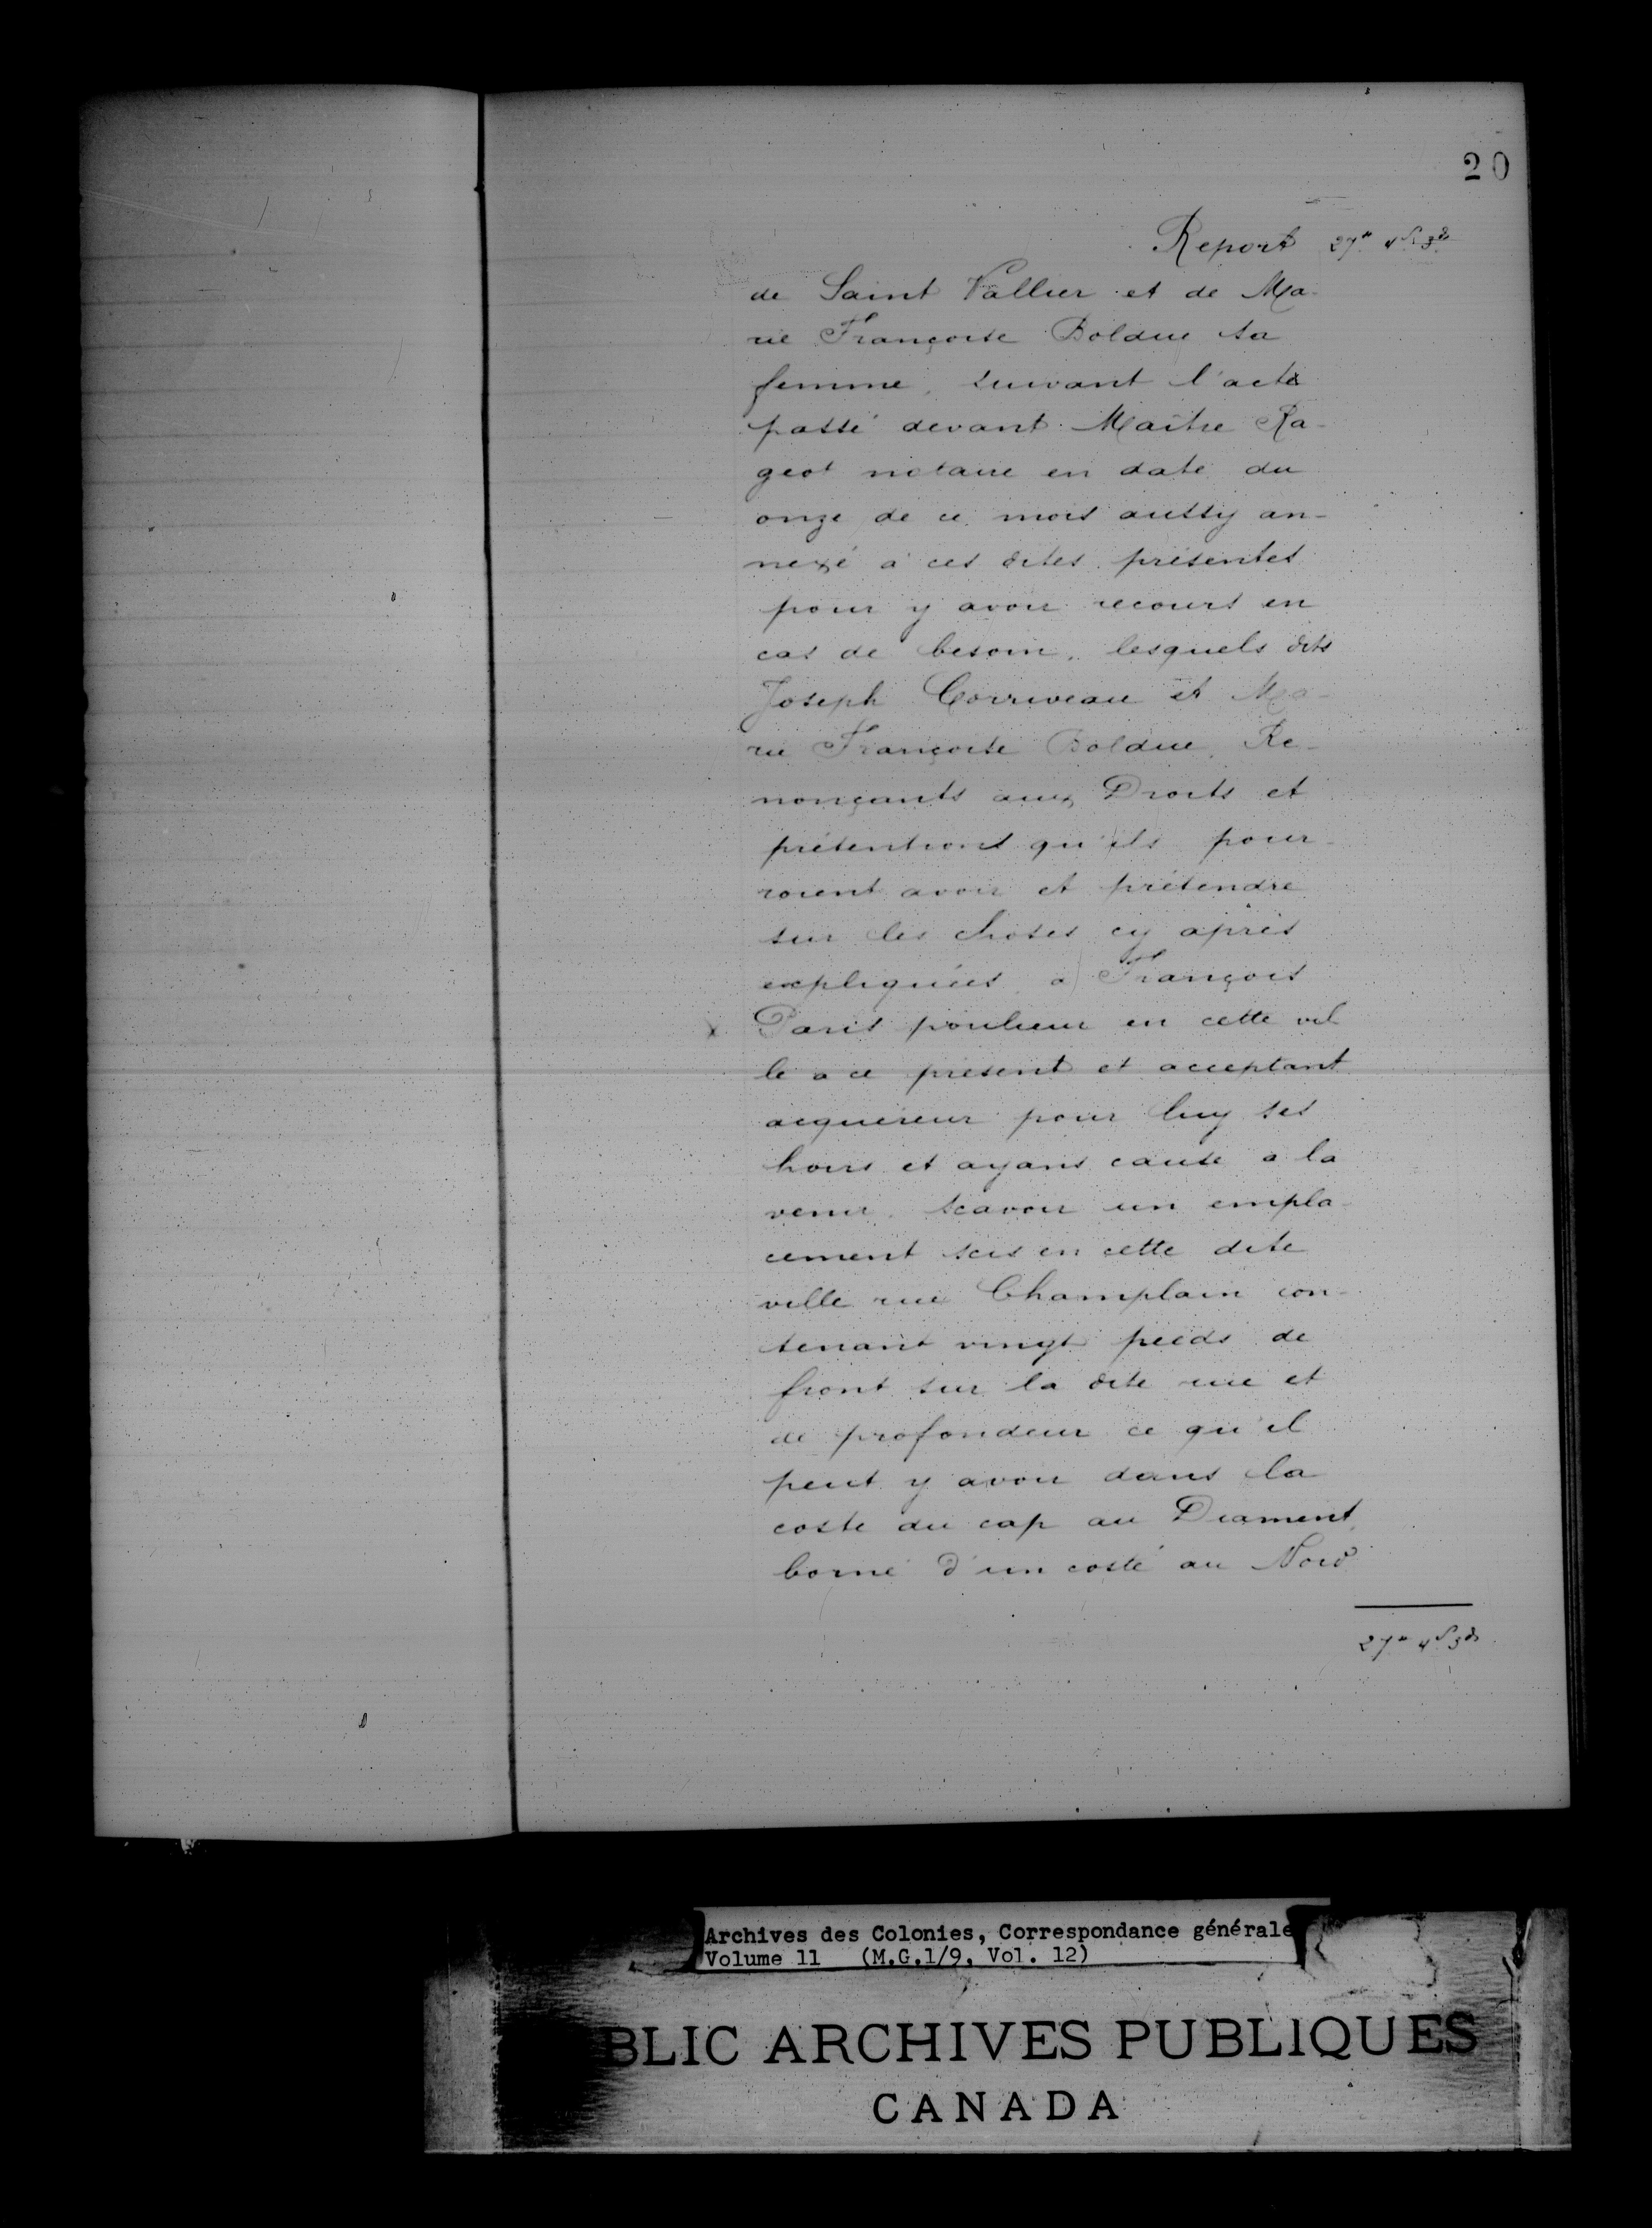 20
Report 27tt 4s 3d
de Saint Vallier et de Ma-
rie Françoise Bolduc sa
femme, suivant l'acte
passé devant Maître Ra-
geot notaire en date du
onze de ce mois aussy an-
nexé à ces dites présentes
pour y avoir recours en
cas de besoin, lesquels dits
Joseph Corriveau et Ma-
rie Françoise Bolduc, Re-
nonçants aux Droits et
prétentions qu'ils pour-
roient avoir et prétendre
sur les choses cy après
expliquées, a) François
x Paris poulieur en cette vil
le a ce présent et acceptant
acquéreur pour luy ses
hoirs et ayans cause a la
venir, scavoir un empla-
cement scis en cette dite
ville rue Champlain con-
tenant vingt pieds de
front sur la dite rue et
de profondeur ce qu'il
peut y avoir dans la
coste du cap au Diament,
borné d'un costé au Nord
27tt 4s 3d
Archives des Colonies, Correspondance générale
Volume 11 (M.G.1/9, Vol. 12)
BLIC ARCHIVES PUBLIQUES
CANADA